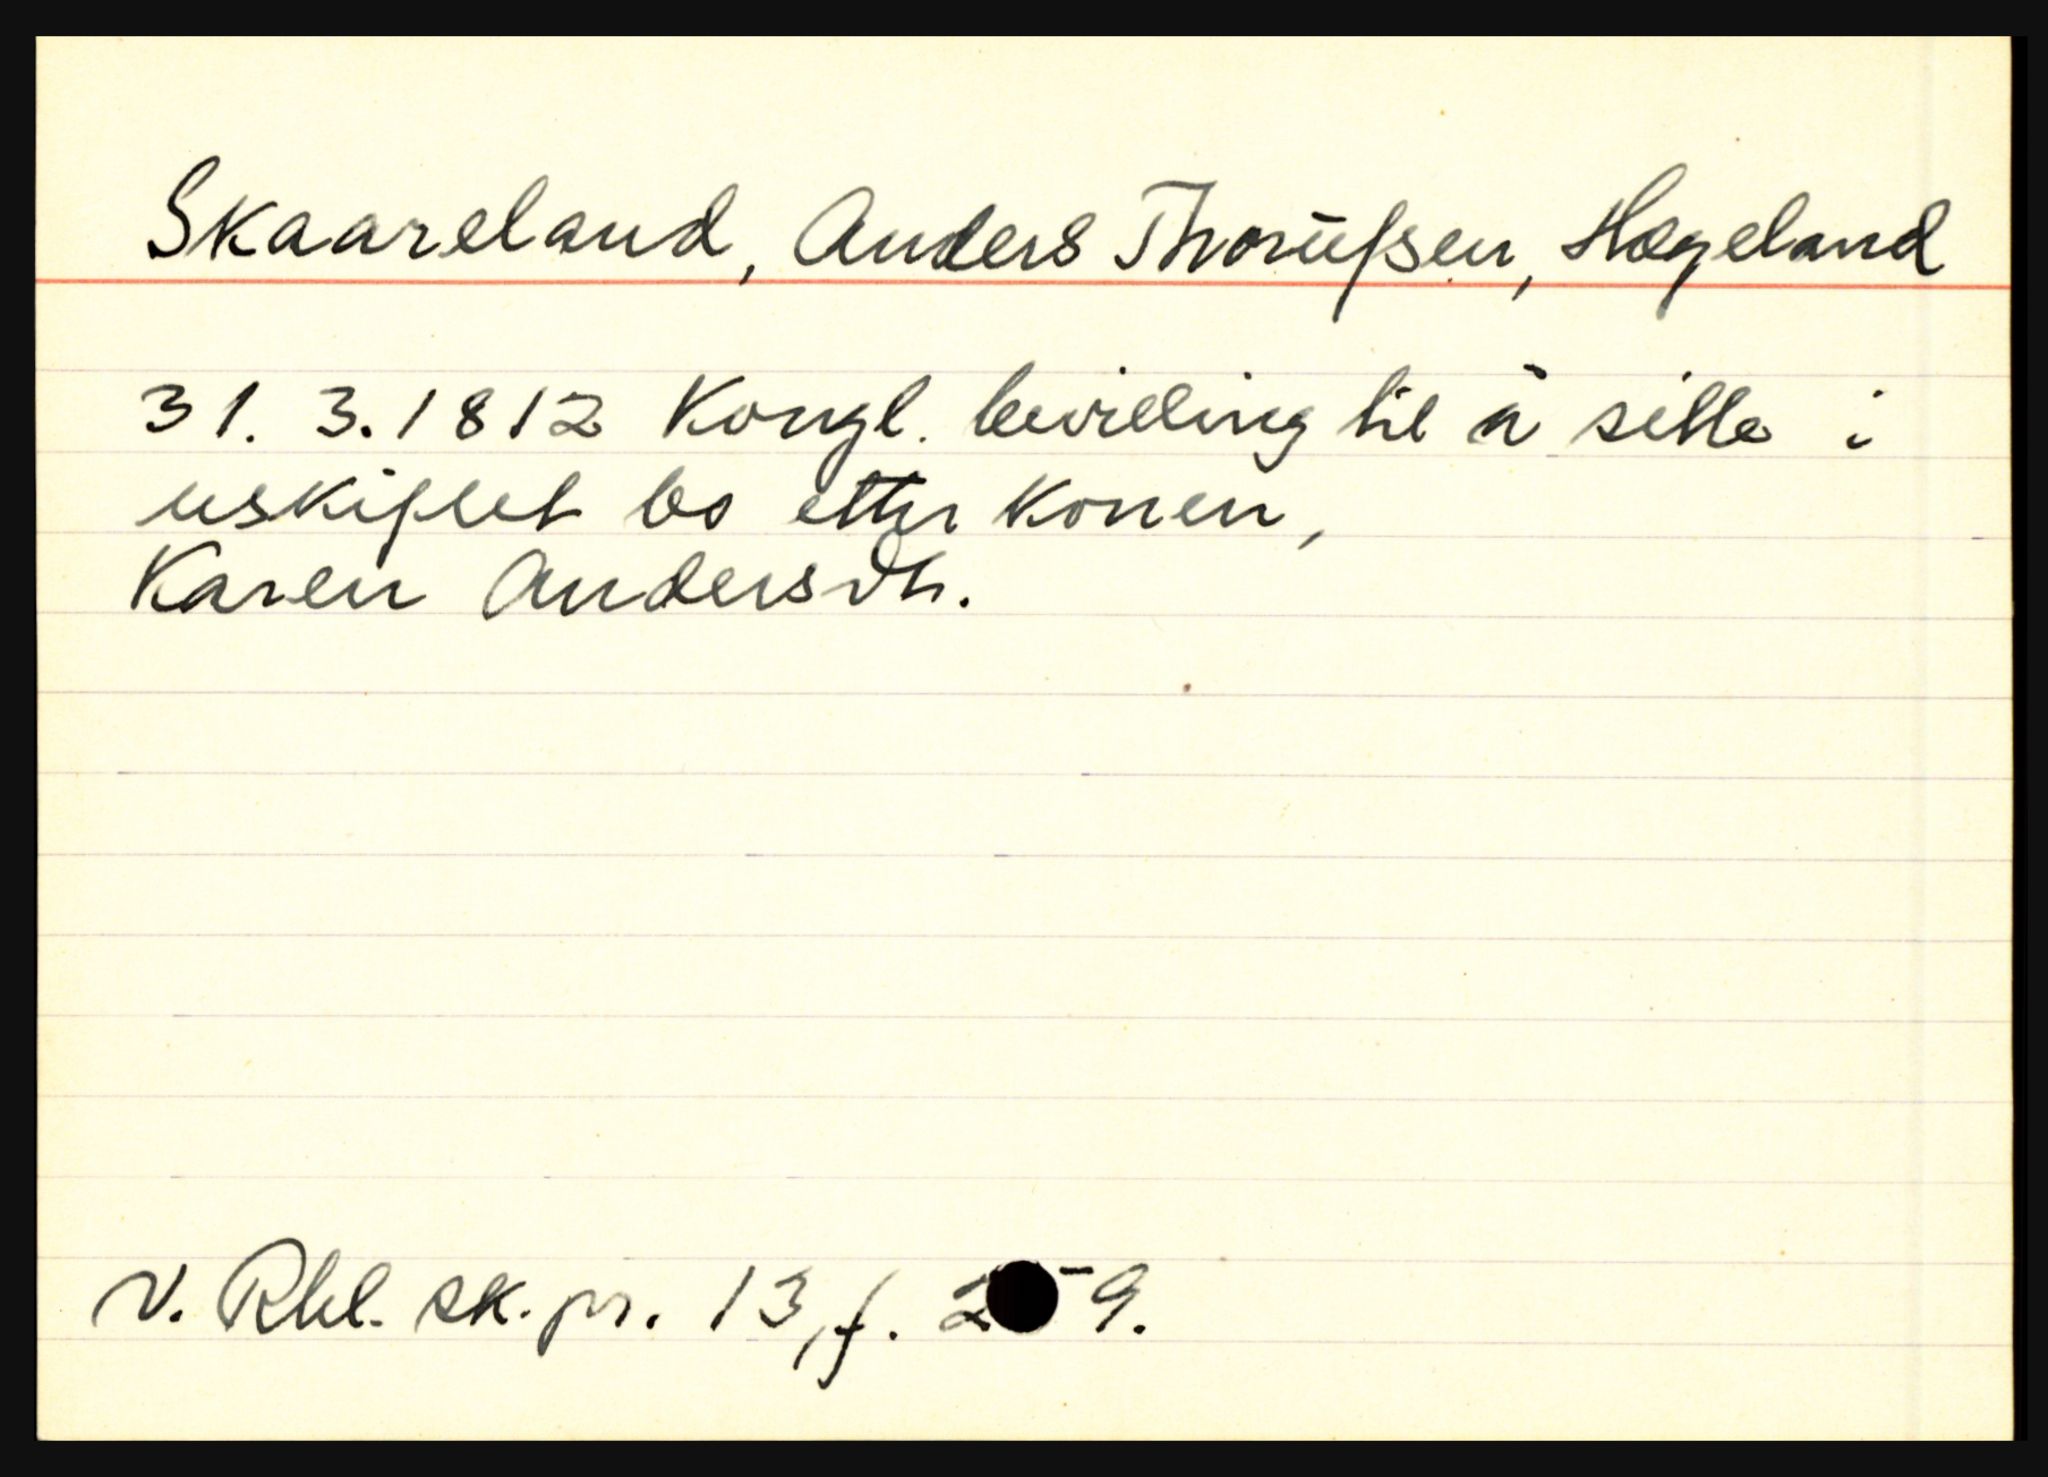 Skaareland, Anders Thorüfsen, Hægeland
31. 3. 1812 Kongl. bevilling til å sitte i
uskiftet bo etter konen,
Karen Andersdtr.
V. Rbl. sk. pr. 13, f. 9.